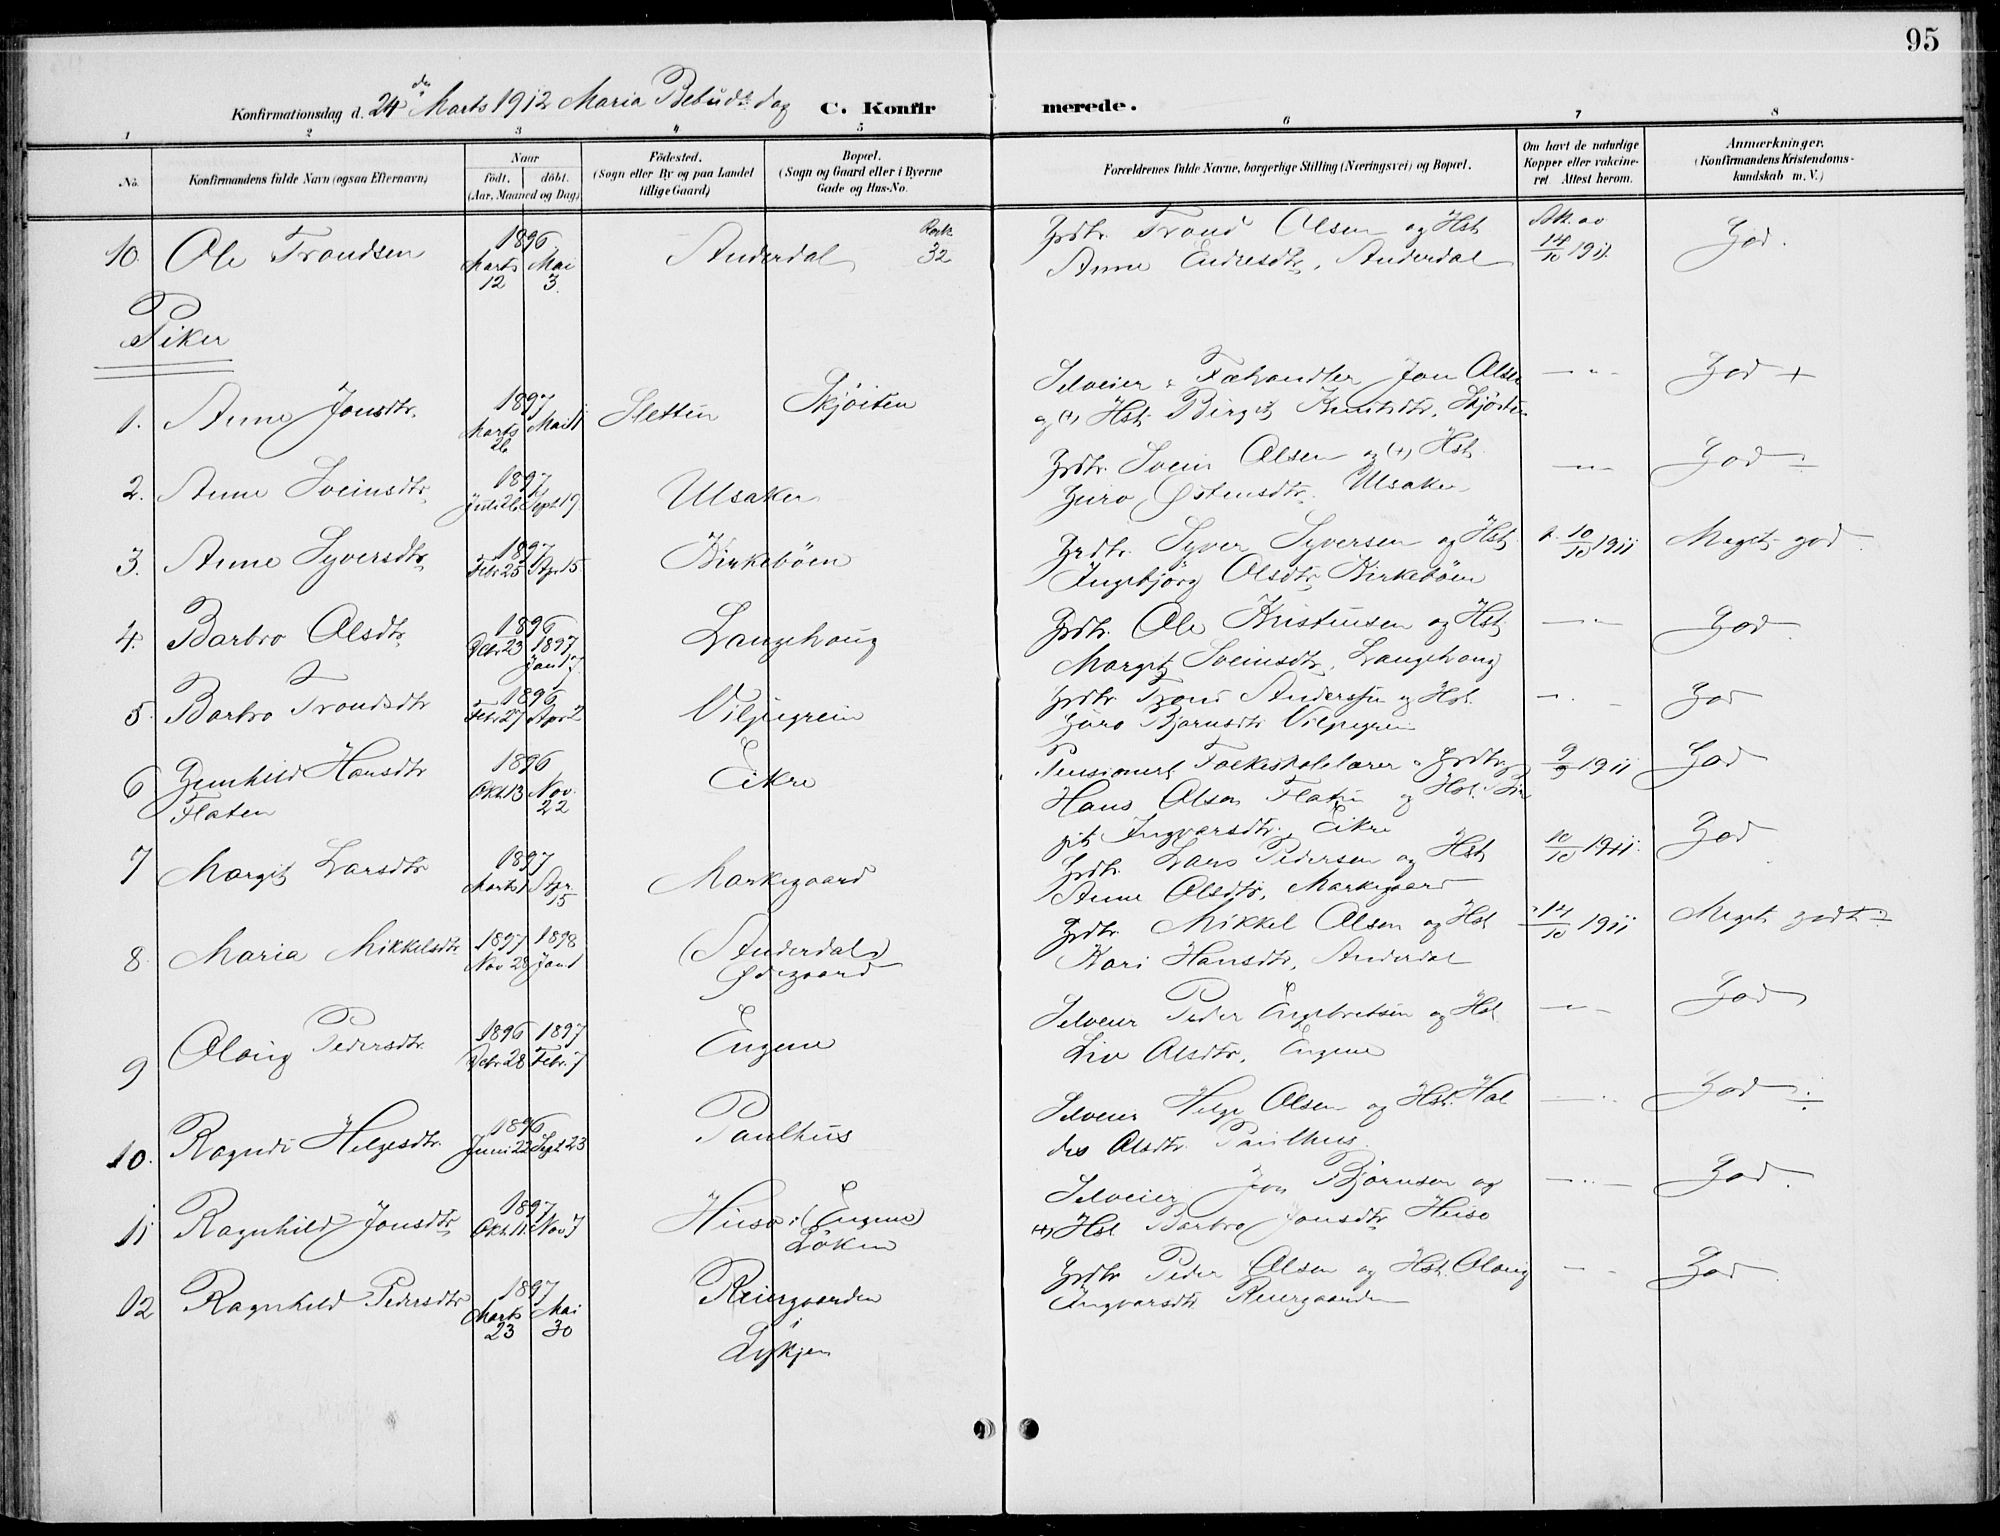 95
Konfirmationsdag d. 24de Marts 1912 Maria Bebud. dag C. Konfirmerede.
1 2 3 4 5 6 7 8
No. Konfirmandens fulde Navn (ogsaa Efternavn) Naar født. døbt. (Aar, Maaned og Dag) Fødested. (Sogn eller By og paa Landet tillige Gaard) Bopæl. (Sogn og Gaard eller i Byerne Gade og Hus-No. Forældrenes fulde Navne, borgerlige Stilling (Næringsvei) og Bopæl. Om havt de naturlige Kopper eller vakcineret. Attest herom. Anmærkninger. (Konfirmandens Kristendomskundskab m. V.)
10. Ole Trondsen 1896. Marts 12 Mai 3. Anderdal 32 Grdbr. Trond Olsen og Hst. Anne Endresdtr. Anderdal Att. av 14/10 1911. God.
Piker
1. Anne Jonsdtr. 1897 Marts 26 Mai 11 Sletten Skjøiten Selveier Fæhandler Jon Olsen og (+) Hst. Birgit Knutsdtr. Skjøiten — " — God +
2. Anne Sveinsdtr. 1897 Juli 26 Sept 19. Ulsaker Grdbr. Svein Olsen og (+) Hst. Guro Østensdtr. Ulsaker — " — God
3. Anne Syversdtr. 1897 Febr 25 Apr 15 Birkebøen Grdbr. Syver Syversen og Hst. Ingebjørg Olsdtr. Birkebøen 10/10 1911 Meget god.
4. Barbro Olsdtr. 1896 Debr 23 1897 Jan 17 Langehaug Grdbr. Ole Kristensen og Hst. Margit Sveinsdtr. Langehaug — " — God.
5. Barbro Trondsdtr 1896 Febr 27 Apr 2 Vilpegrein Grdbr. Trond Andersen og Hst. Guro Bjørnsdtr Vilpegrein — " — God
6 Gunhild Hansdtr Flaten 1896 Okt 13 Nov. 22 Eikre Pensionert Folkeskolelærer Grdbr. Hans Olsen Flaten og Hst. Birgit Ingvarsdtr. Eikre 9/9 1911 God
7 Margit Larsdtr 1897 Marts 1 Apr. 15 Markegaard Grdbr. Lars Pedersen og Hst. Anne Olsdtr. Markegaard 10/10 1911. God
8. Maria Mikkelsdtr. 1897 Nov 28 1898 Jan 1 (Anderdal) Ødegaard Grdbr. Mikkel Olsen og Hst Kari Hansdtr. Anderdal 14/10 1911 Meget godt
9 Olaug Pedersdtr. 1896 Debr 28 1897 Febr. 7 Engene Selveier Peder Engebretsen og Hst. Liv Olsdtr. Engene — " — God
10. Ragndi Helgesdtr. 1896 Juni 22 Sept 23 Paulhus Selveier Helge Olsen og Hst. Haldis Olsdtr. Paulhus. — " — God
11 Ragnhild Jonsdtr. 1897 Okt. 11 Nov 7 Huso (Engene) Løken Selveier Jon Bjørnsen og (+) Hst Barbro Jonsdtr. Huso — " — God.
12 Ragnhild Pedersdtr 1897 Marts 23 Mai 30 Reiergaarden Lykjen Grdbr Peder Olsen og Hst. Olaug Ingvarsdtr Reiergaarden — " — God